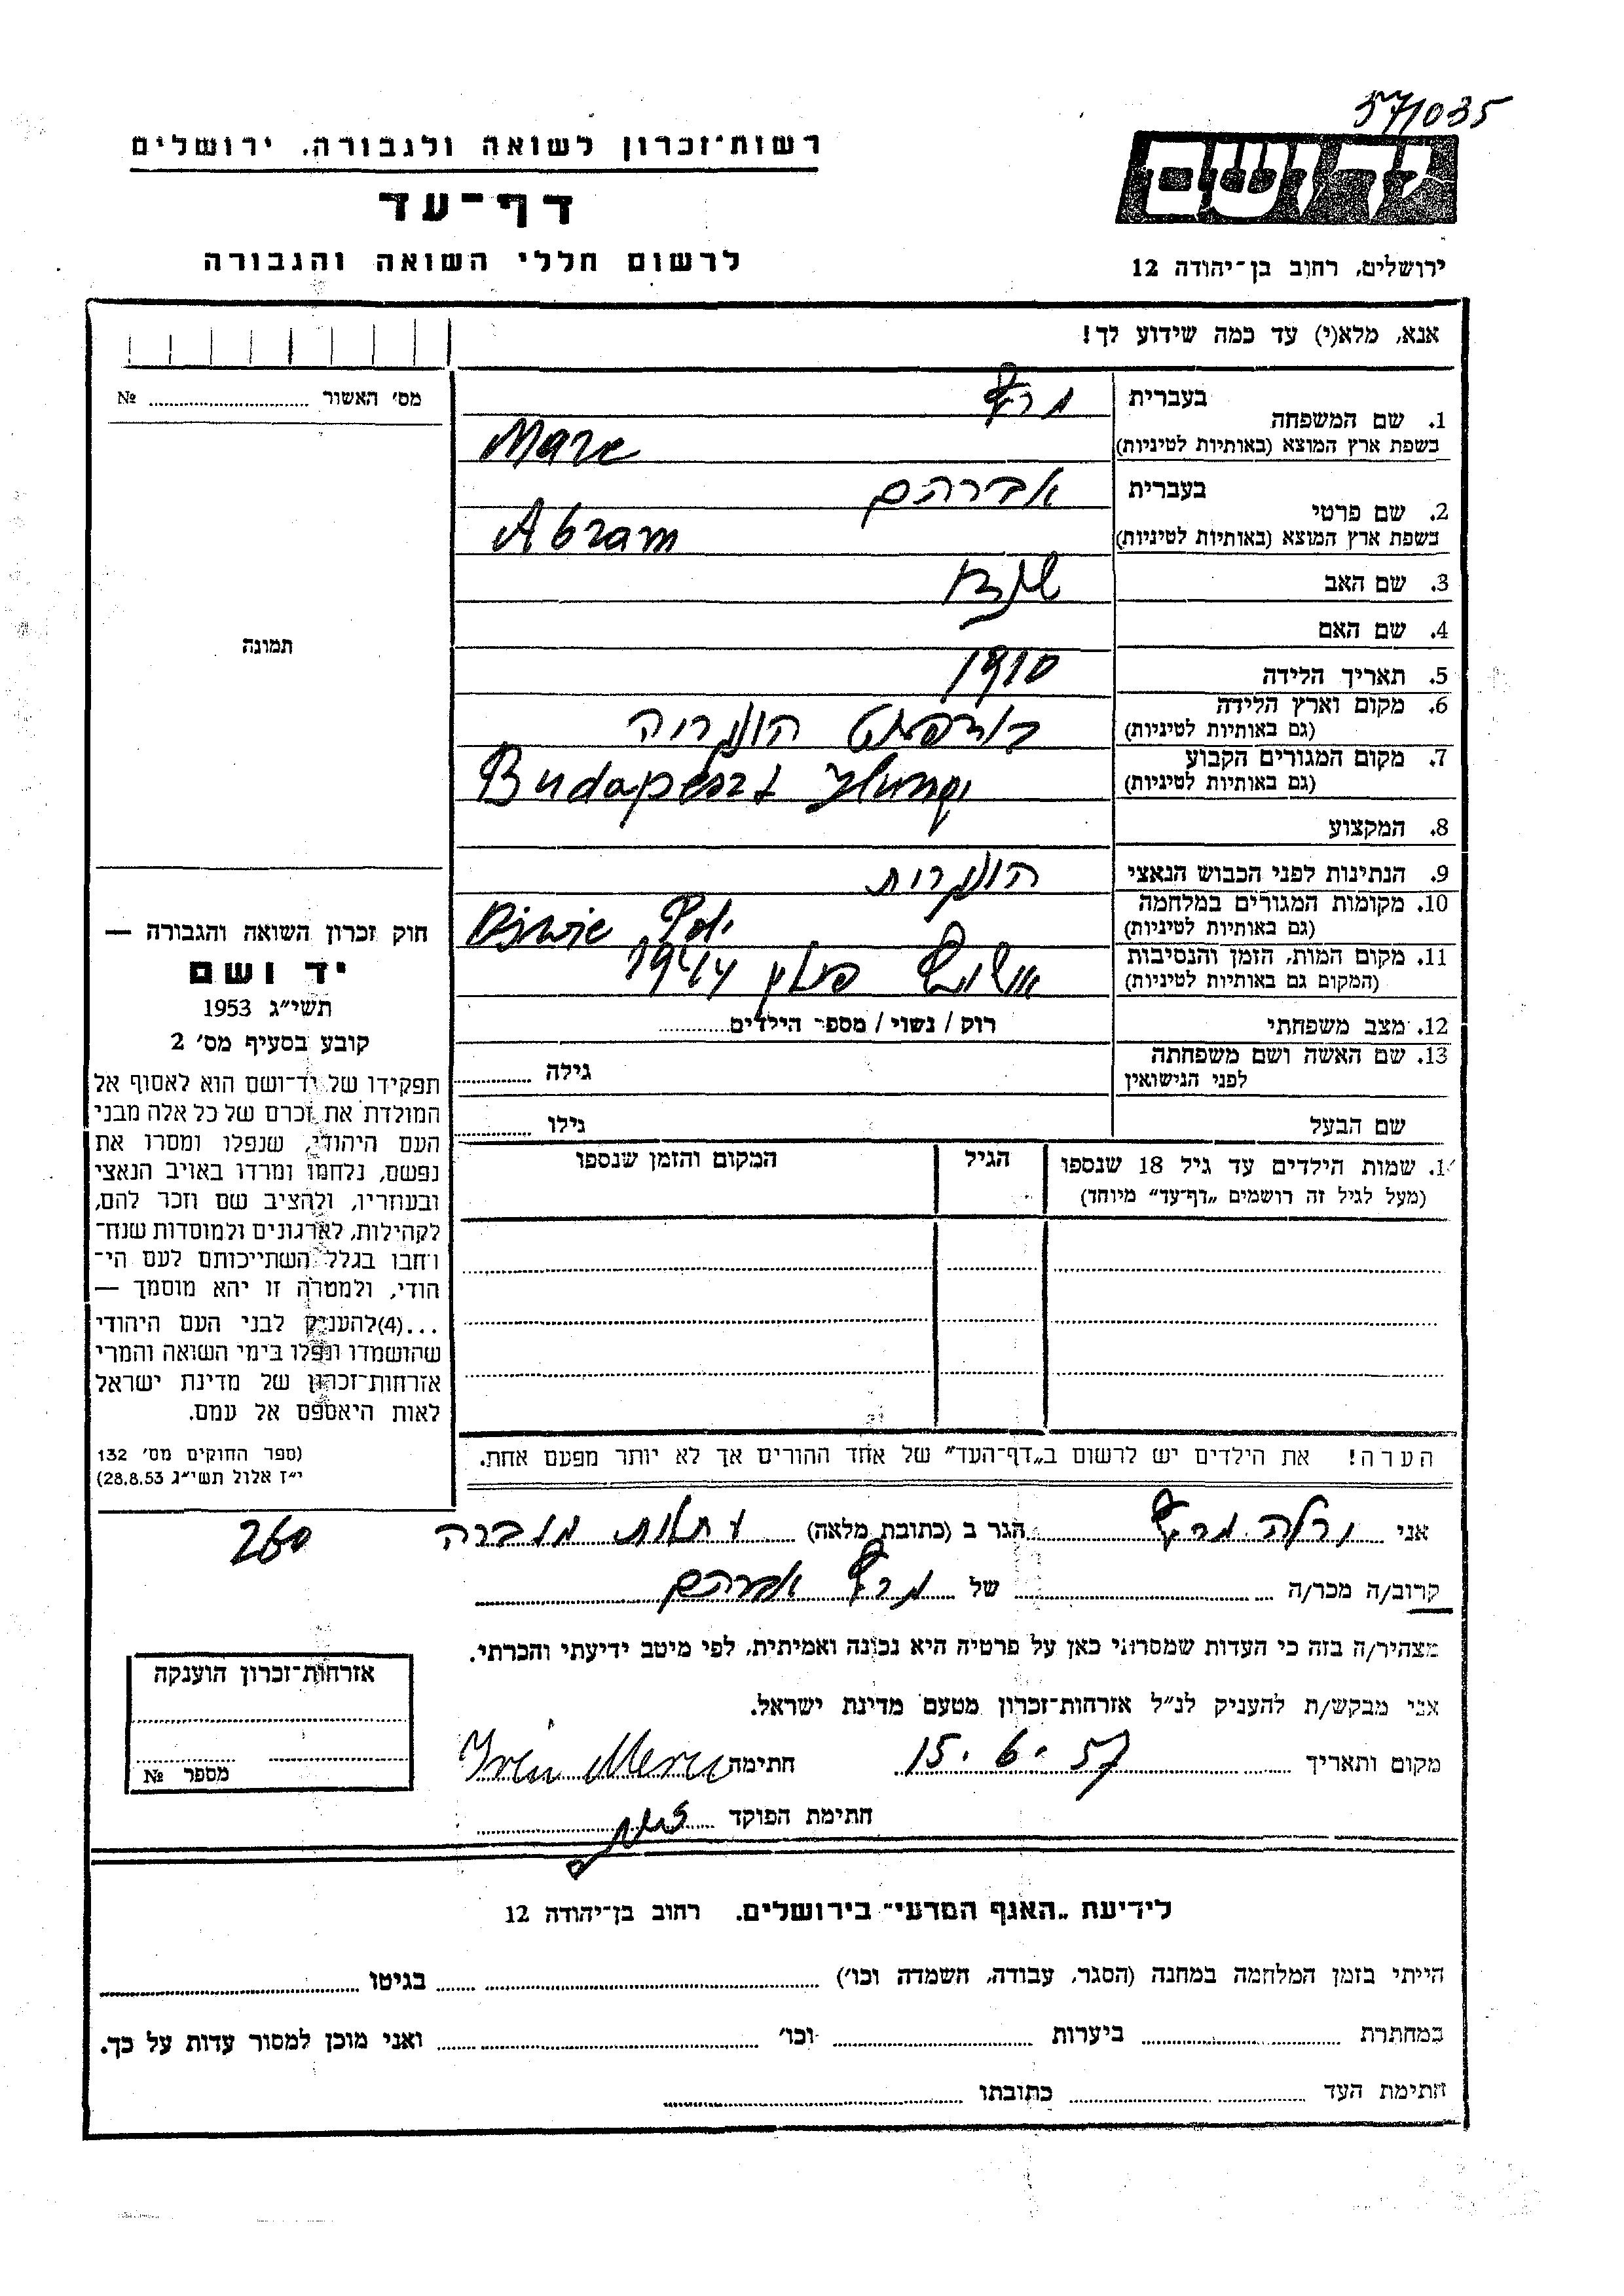 57/035
רשות־זכרון לשואה ולגבורה. ירושלים
דף־עד
לרשום חללי השואה והגבורה
יד ושם
ירושלים, רחוב בן־יהודה 12
אנא, מלא(י) עד כמה שידוע לך!
מס׳ האשור № 
תמונה
1. שם המשפחה בעברית
בשפת ארץ המוצא (באותיות לטיניות)
Mare
2. שם פרטי בעברית אברהם
בשפת ארץ המוצא (באותיות לטיניות) Abram
3. שם האב
4. שם האם
5. תאריך הלידה 1910
6. מקום וארץ הלידה בודפסט הונגריה
(גם באותיות לטיניות)
7. מקום המגורים הקבוע Budapeszt
(גם באותיות לטיניות)
8. המקצוע
9. הנתינות לפני הכבוש הנאצי הונגרית
10. מקומות המגורים במלחמה
(גם באותיות לטיניות)
11. מקום המות, הזמן והנסיבות פולין 1944
(המקום גם באותיות לטיניות)
12. מצב משפחתי רוק / נשוי / מספר הילדים
13. שם האשה ושם משפחתה גילה
לפני הנישואין
שם הבעל גילו
1. שמות הילדים עד גיל 18 שנספו הגיל המקום והזמן שנספו
(מעל לגיל זה רושמים „דף־עד״ מיוחד)
הערה! את הילדים יש לרשום ב„דף־העד״ של אחד ההורים אך לא יותר מפעם אחת.
חוק זכרון השואה והגבורה —
יד ושם
תשי״ג 1953
קובע בסעיף מס׳ 2
תפקידו של יד־ושם הוא לאסוף אל
המולדת את זכרם של כל אלה מבני
העם היהודי, שנפלו ומסרו את
נפשם, נלחמו ומרדו באויב הנאצי
ובעוזריו, ולהציב שם וזכר להם,
לקהילות, לארגונים ולמוסדות שנח־
רחבו בגלל השתייכותם לעם הי־
הודי, ולמטרה זו יהא מוסמך —
...(4)להעניק לבני העם היהודי
שהושמדו ונפלו בימי השואה והמרי
אזרחות־זכרון של מדינת ישראל
לאות היאספם אל עמם.
(ספר החוקים מס׳ 132
י״ז אלול תשי״ג 28.8.53)
אני הגר ב (כתובת מלאה)
260
קרוב/ה מכר/ה של אברהם
מצהיר/ה בזה כי העדות שמסרתי כאן על פרטיה היא נכונה ואמיתית, לפי מיטב ידיעתי והכרתי.
אני מבקש/ת להעניק לנ״ל אזרחות־זכרון מטעם מדינת ישראל.
מקום ותאריך 15.6.57 חתימה
חתימת הפוקד
אזרחות־זכרון הוענקה
מספר №
לידיעת „האגף המדעי״ בירושלים. רחוב בן־יהודה 12
הייתי בזמן המלחמה במחנה (הסגר, עבודה, השמדה וכו׳) בגיטו
במחתרת ביערות וכו׳ ואני מוכן למסור עדות על כך.
חתימת העד כתובתו